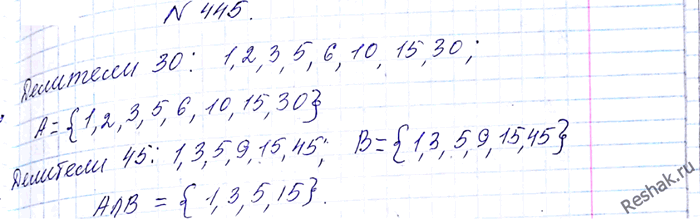 N 445.
Делители 30: 1, 2, 3, 5, 6, 10, 15, 30;
A = {1, 2, 3, 5, 6, 10, 15, 30}
Делители 45: 1, 3, 5, 9, 15, 45; B = {1, 3, 5, 9, 15, 45}
A∩B = {1, 3, 5, 15}.
Reshak.ru